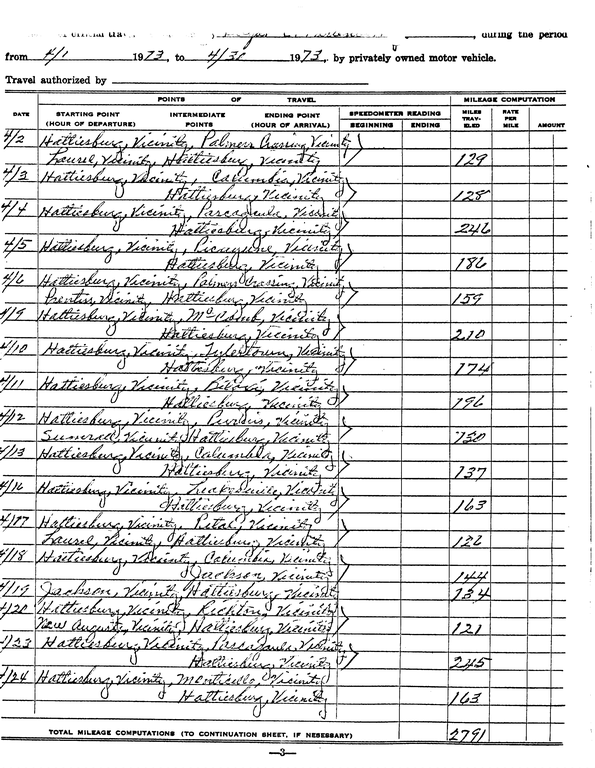 , during the period
from 4/1 1973, to 4/30 1973, by privately owned motor vehicle.
Travel authorized by
POINTS OF TRAVEL MILEAGE COMPUTATION
DATE STARTING POINT (HOUR OF DEPARTURE) INTERMEDIATE POINTS ENDING POINT (HOUR OF ARRIVAL) SPEEDOMETER READING BEGINNING ENDING MILES TRAV-ELED RATE PER MILE AMOUNT
4/2 Hattiesburg, Vicinity, Palmers Crossing, Vicinity
Laurel, Vicinity, Hattiesburg, Vicinity 129
4/3 Hattiesburg, Vicinity, Columbia, Vicinity
Hattiesburg, Vicinity 128
4/4 Hattiesburg, Vicinity, Pascagoula, Vicinity
Hattiesburg, Vicinity 246
4/5 Hattiesburg, Vicinity, Picayune, Vicinity
Hattiesburg, Vicinity 186
4/6 Hattiesburg, Vicinity, Palmers Crossing, Vicinity
Prentiss, Vicinity Hattiesburg, Vicinity 159
4/9 Hattiesburg, Vicinity, McComb, Vicinity
Hattiesburg, Vicinity 210
4/10 Hattiesburg, Vicinity, Tylertown, Vicinity
Hattiesburg, Vicinity 174
4/11 Hattiesburg, Vicinity, Biloxi, Vicinity
Hattiesburg, Vicinity 196
4/12 Hattiesburg, Vicinity, Purvis, Vicinity
Sumrall, Vicinity Hattiesburg, Vicinity 150
4/13 Hattiesburg, Vicinity, Columbia, Vicinity
Hattiesburg, Vicinity 137
4/16 Hattiesburg, Vicinity, Leakesville, Vicinity
Hattiesburg, Vicinity 163
4/17 Hattiesburg, Vicinity, Petal, Vicinity
Laurel, Vicinity, Hattiesburg, Vicinity 122
4/18 Hattiesburg, Vicinity, Columbia, Vicinity
Jackson, Vicinity 144
4/19 Jackson, Vicinity, Hattiesburg, Vicinity 134
4/20 Hattiesburg, Vicinity, Richton, Vicinity
New Augusta, Vicinity, Hattiesburg, Vicinity 121
4/23 Hattiesburg, Vicinity, Pascagoula, Vicinity
Hattiesburg, Vicinity 245
4/24 Hattiesburg, Vicinity, Monticello, Vicinity
Hattiesburg, Vicinity 163
TOTAL MILEAGE COMPUTATIONS (TO CONTINUATION SHEET, IF NESESSARY) 2791
—3—